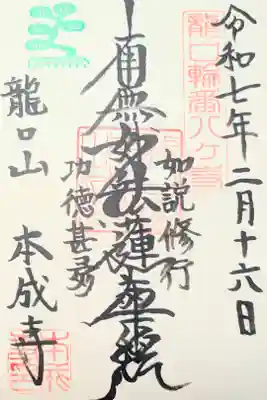 令和七年二月十六日
龍口輪番八ヶ寺
如説修行
南無妙法蓮華経
功徳甚多
龍口山 本成寺